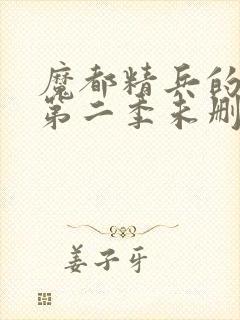 魔都精兵的
第二季未删
姜子牙